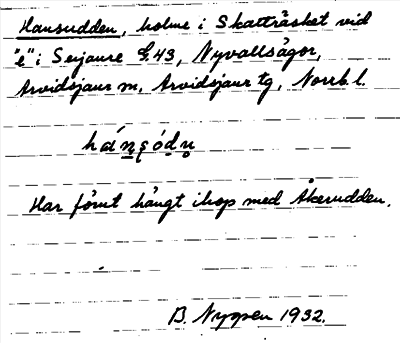 Hansudden, holme i Skatträsket vid
"e" i Seijaure G.43, Nyvallsågor,
Arvidsjaur sn, Arvidsjaur tg, Norrb. l.
Har förut hängt ihop med Åkerudden.
B. Nyman 1932.